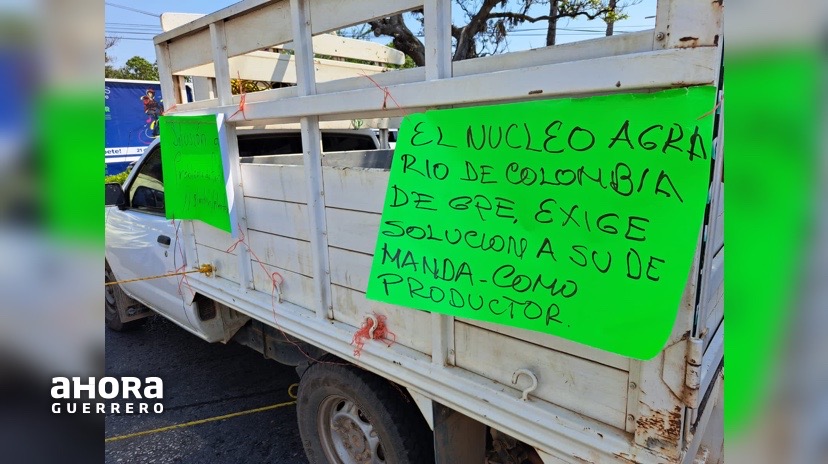 EL NUCLEO AGRA
RIO DE COLOMBIA
DE GPE, EXIGE
SOLUCION A SU DE
MANDA-COMO
PRODUCTOR.
AHORA
GUERRERO